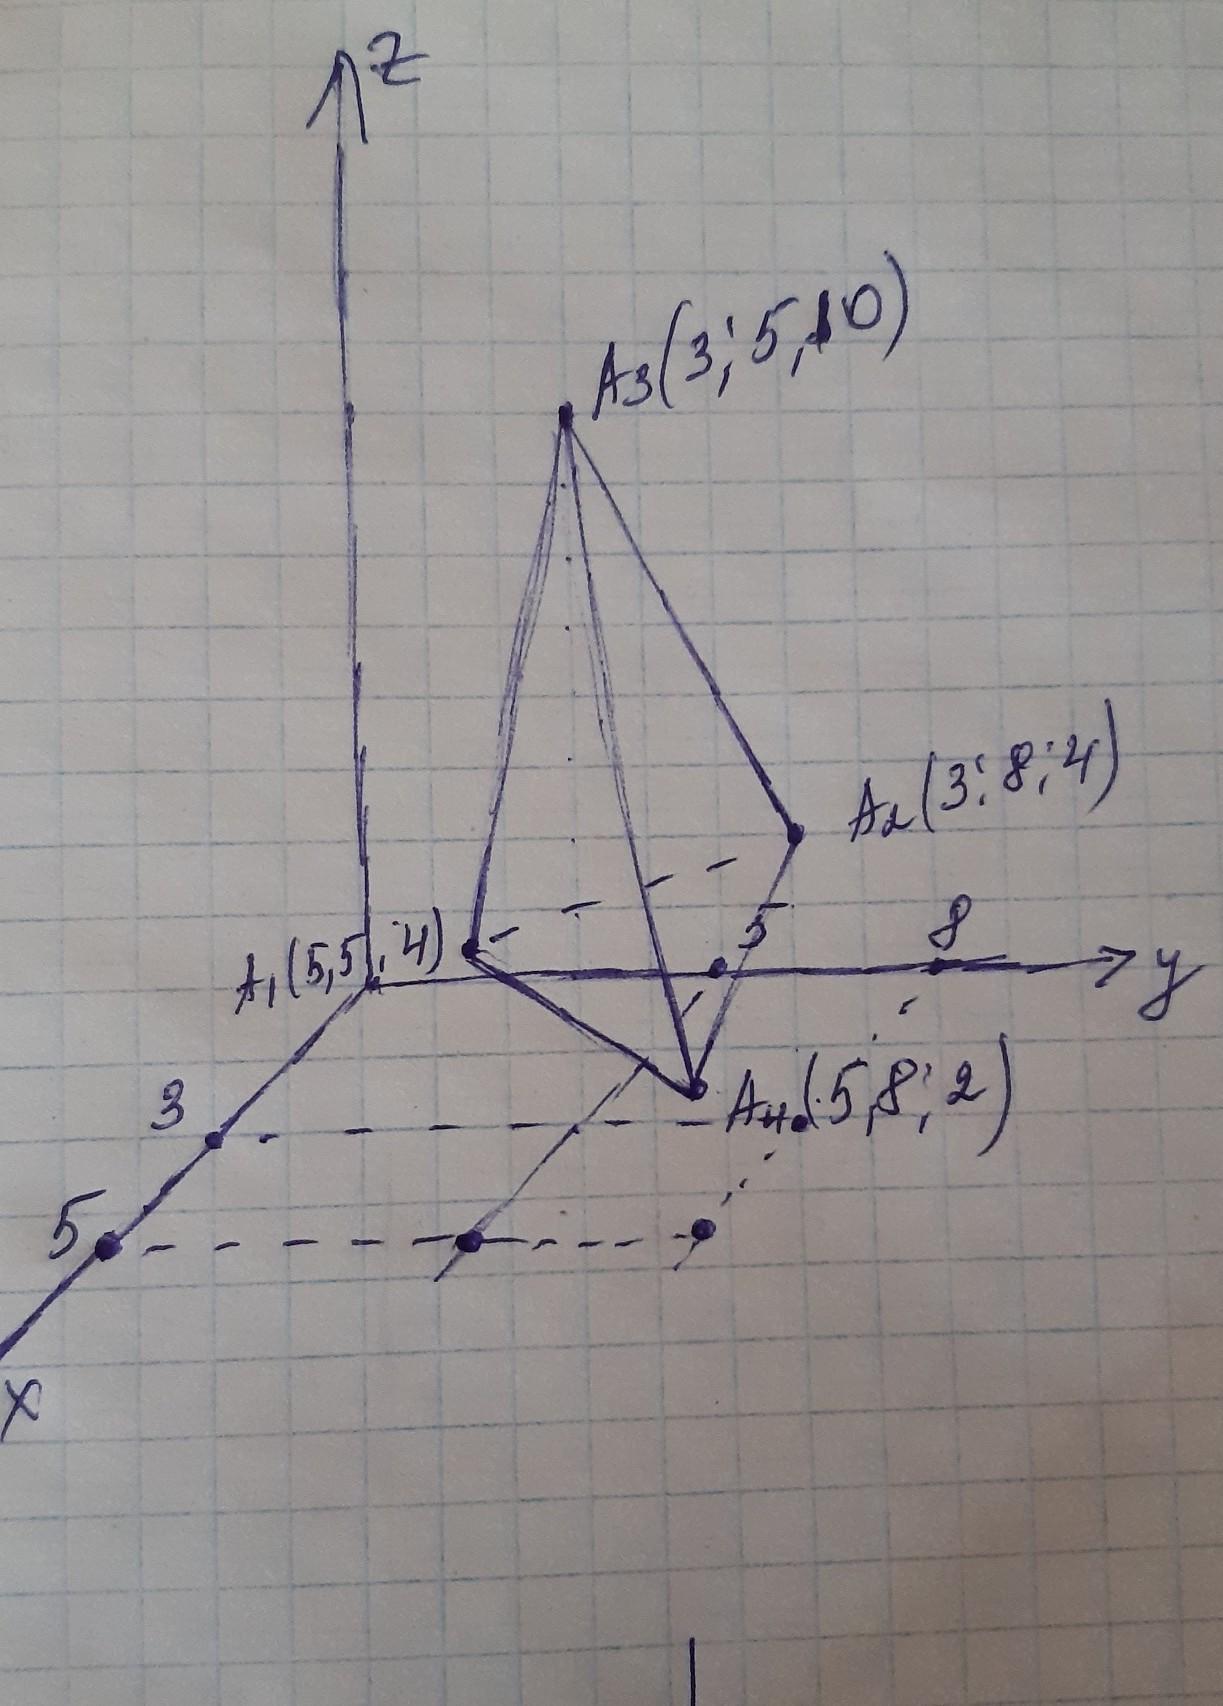 Z
A3(3; 5, 10)
A2(3; 8; 4)
A1(5, 5; 4)
5
8
y
3
A4(5, 8; 2)
5
x